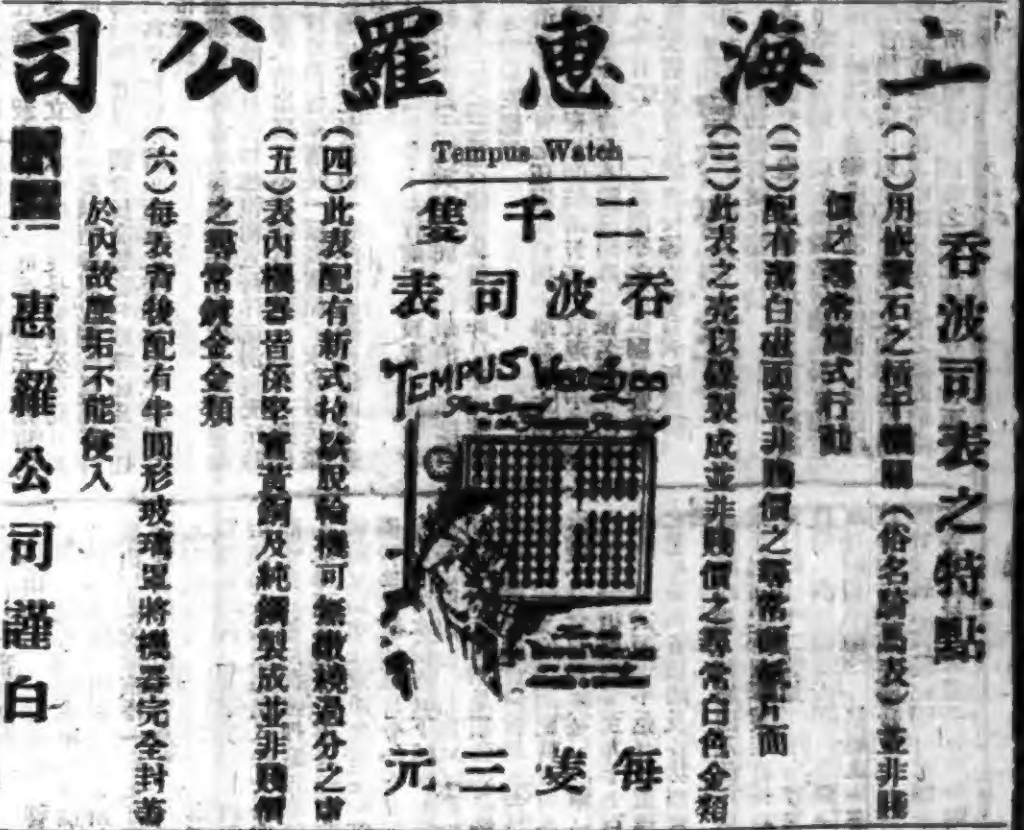 上海惠羅公司
吞波司表之特點
(一)用嵌寶石之 機關(俗名騎馬表)並非賤
價之尋常舊式行動
(二)配有潔白磁面並非賤價之尋常 紙片面
(三)此表之壳以 製成並非賤價之尋常白色金類
Tempus Watch
二千隻
吞波司表
TEMPUS Watches
每隻三元
(四)此表配有新式 脫輪機可無 繞過分之虞
(五)表內機器皆係堅實黃銅及純鋼製成並非賤價
之尋常鍍金金類
(六)每表背後配有牛圓形玻璃罩將機器完全封蓋
於內故塵垢不能侵入
惠羅公司謹白